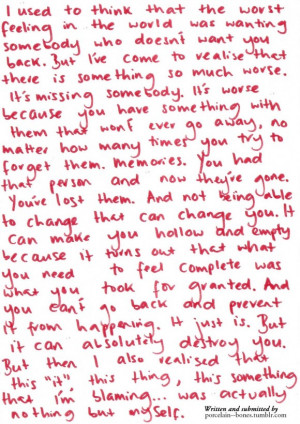 I used to think that the worst
feeling in the world was wanting
somebody who doesn't want you
back. But I've come to realise that
there is something so much worse.
It's missing somebody. It's worse
because you have something with
them that won't ever go away, no
matter how many times you try to
forget them. Memories. You had
that person and now they're gone.
You've lost them. And not being able
to change that can change you. It
can make you hollow and empty
because it turns out that what
you need to feel complete was
what you took for granted. And
you can't go back and prevent
it from happening. It just is. But
it can absolutity destroy you.
But then I also realised that
this "it", this thing, this something
that I'm blaming... was actually
nothing but myself.
Written and submitted by
porcelain-bones.tumblr.com